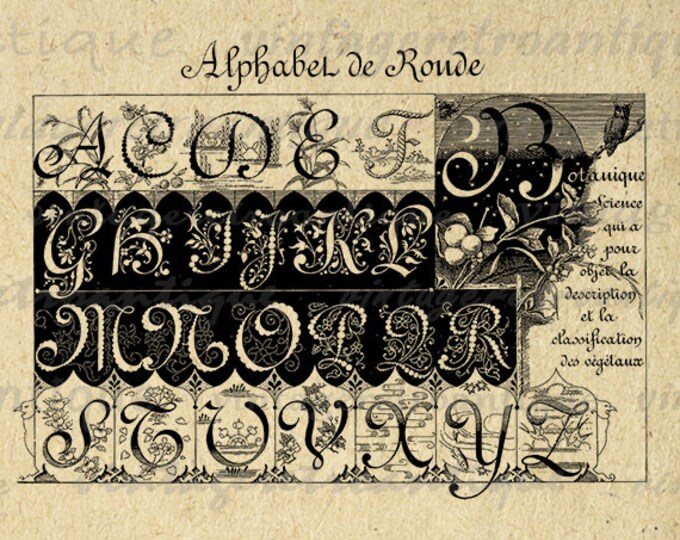 vintageretroantique
Alphabet de Ronde
A C D E F
G H I J K L
M N O P Q R
S T U V X Y Z
Botanique
Science
qui a
pour
objet la
description
et la
classification
des végétaux